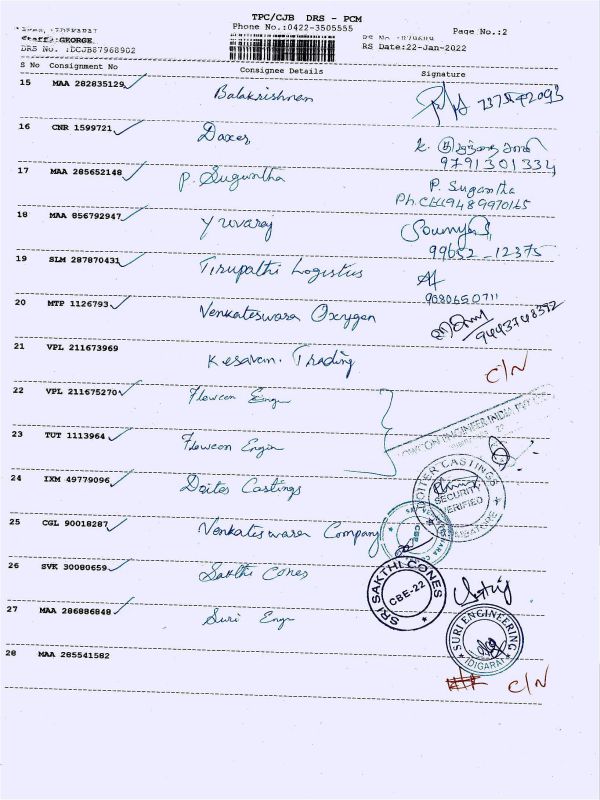 TPC/CJB DRS - PCM
Phone No.:0422-3505555
Page No.:2
Staff:GEORGE
DRS No. :DCJB87968902
RS Date:22-Jan-2022
S No Consignment No Consignee Details Signature
15 MAA 282835129 Balakrishnan
16 CNR 1599721 Daxer
9791301334
17 MAA 285652148 P. Sugantha P. Sugantha
9489970165
18 MAA 856792947 Yuvaraj Sowmya
99652-12375
19 SLM 287870431 Tirupathi Logistics
9080650711
20 MTP 1126793 Venkateswara Oxygen
9443748392
21 VPL 211673969 Kesavan. Trading C/N
22 VPL 211675270 Flowcon Engr
23 TUT 1113964 Flowcon Engin
24 IXM 49779096 Doites Castings
DOITER CASTINGS
SECURITY
VERIFIED
25 CGL 90018287 Venkateswara Company
26 SVK 30080659 Sakthi Cones
SRI SAKTHI CONES
CBE-22
27 MAA 286886848 Suri Engr
SURI ENGINEERING
IDIGARAI
28 MAA 285541582 C/N